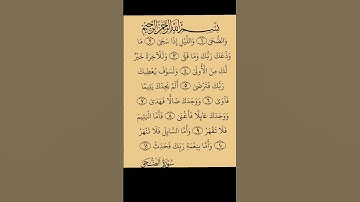 بِسْمِ اللَّهِ الرَّحْمَٰنِ الرَّحِيمِ
وَالضُّحَى ١ وَاللَّيْلِ إِذَا سَجَى ٢ مَا
وَدَّعَكَ رَبُّكَ وَمَا قَلَى ٣ وَلَلْآخِرَةُ خَيْرٌ
لَّكَ مِنَ الْأُولَى ٤ وَلَسَوْفَ يُعْطِيكَ
رَبُّكَ فَتَرْضَى ٥ أَلَمْ يَجِدْكَ يَتِيمًا
فَآوَى ٦ وَوَجَدَكَ ضَالًّا فَهَدَى ٧
وَوَجَدَكَ عَائِلًا فَأَغْنَى ٨ فَأَمَّا الْيَتِيمَ
فَلَا تَقْهَرْ ٩ وَأَمَّا السَّائِلَ فَلَا تَنْهَرْ
١٠ وَأَمَّا بِنِعْمَةِ رَبِّكَ فَحَدِّثْ ١١
سُورَةُ الضُّحَى